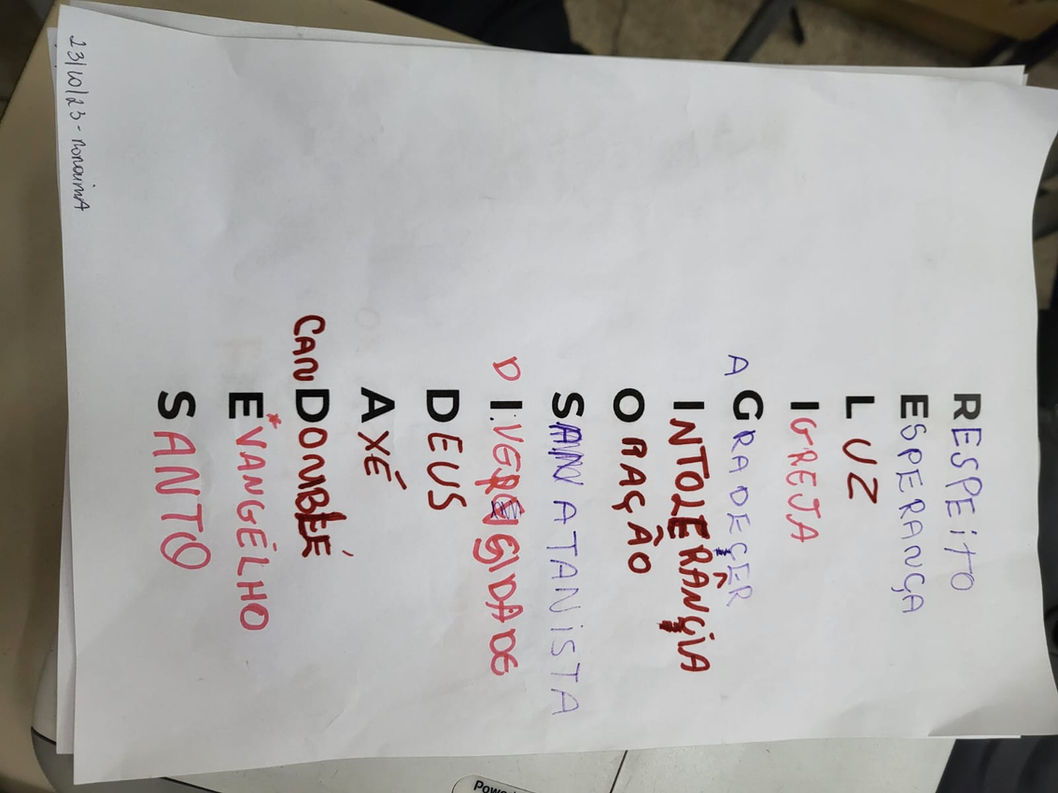 RESPEiTO
ESPERANÇA
LUZ
IGREJA
AGRADEÇER
INTOLERÂNÇiA
ORAÇÃO
SATANiSTA
DIVERSIDADE
DEUS
AXÉ
CANDONBLÉ
EVANGÉLHO
SANTO
23/10/23 -